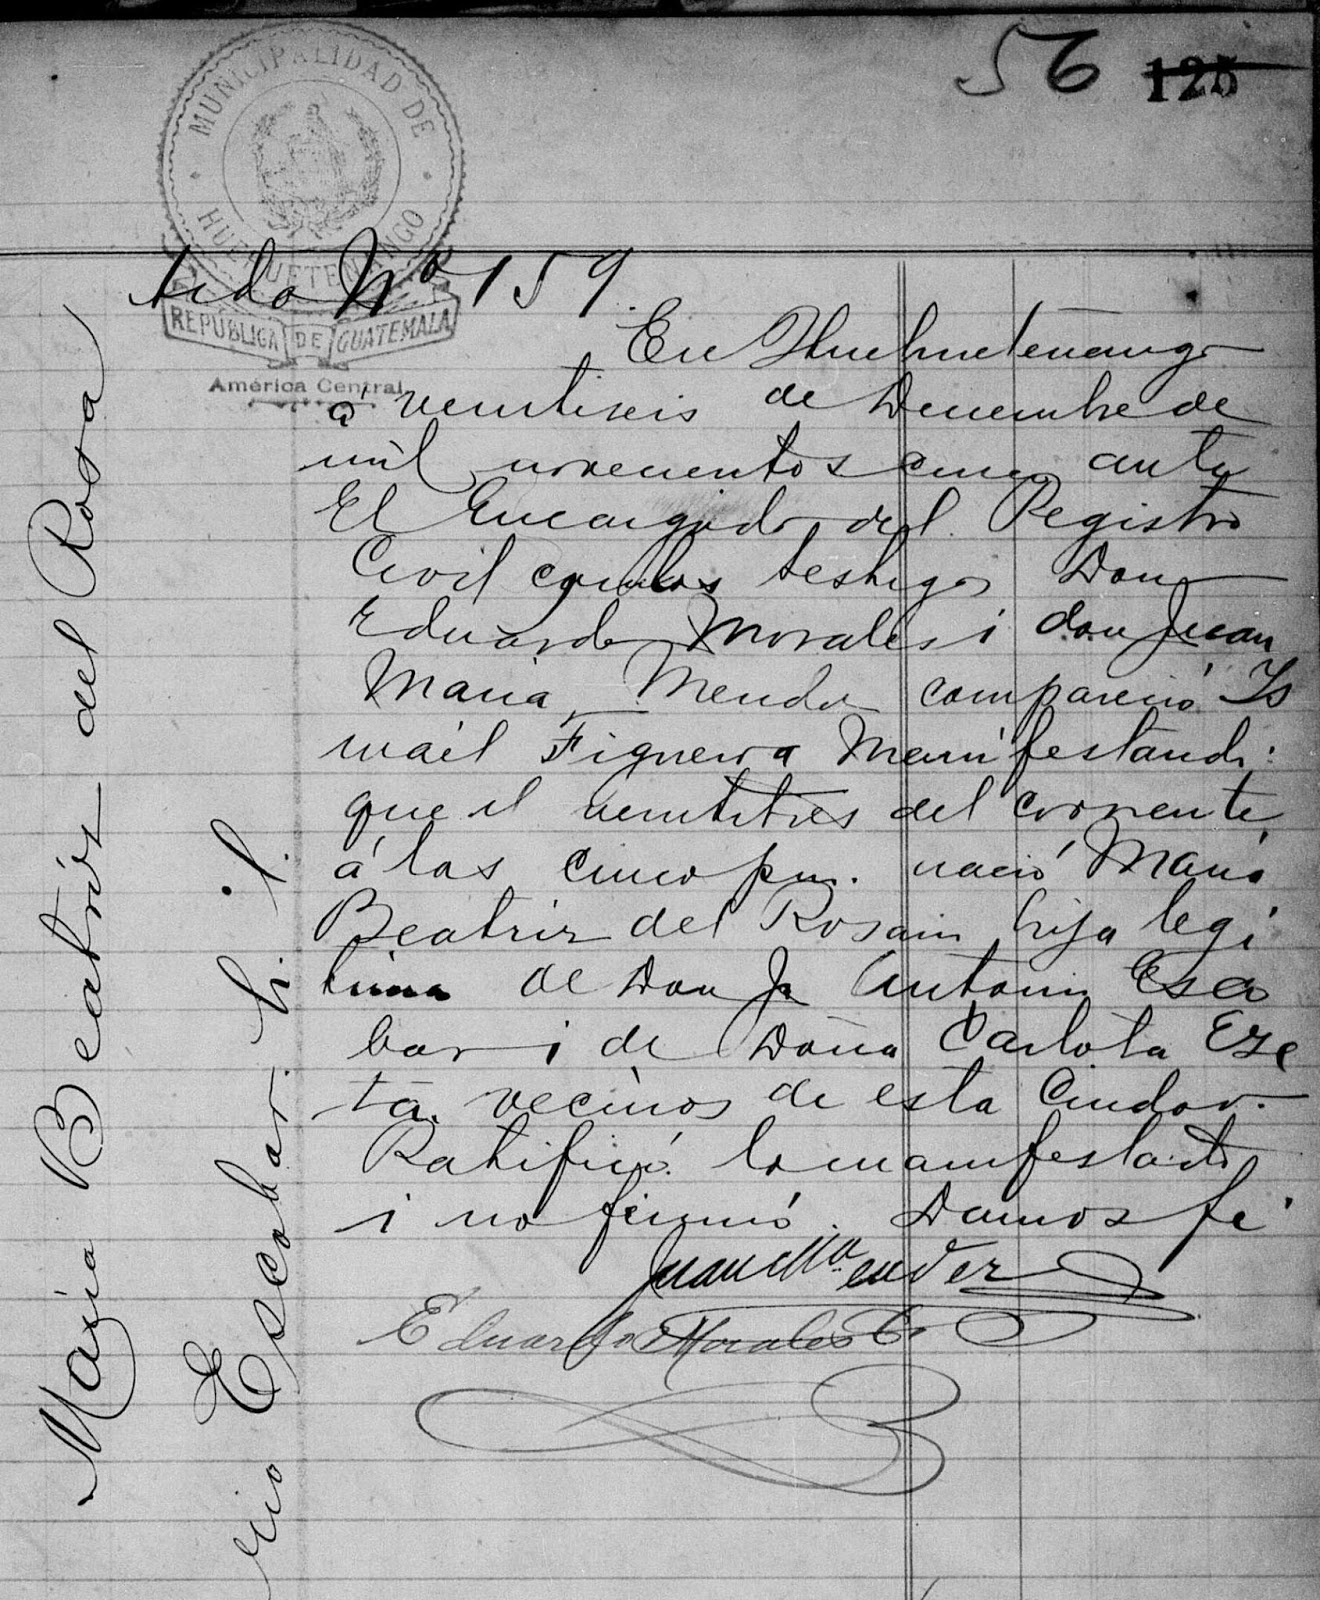 56 125
MUNICIPALIDAD DE
HUEHUETENANGO
REPÚBLICA DE GUATEMALA
América Central
Nº 159.
En Huehuetenango
á veintiseis de Diciembre de
mil novecientos cinco ante
El Encargado del Registro
Civil con los testigos Don
Eduardo Morales i don Juan
Maria Mendez compareció Is
mael Figueroa Manifestando:
que el veintitres del corriente
á las cinco pm. nació Maria
Beatriz del Rosario hija legi
tima de Don J. Antonio Esco
bar i de Doña Carlota Eze
ta. vecinos de esta Ciudad.
Ratificó lo manifestado
i no firmó. Damos fé
Juan Mª Mendez
Eduardo Morales
Maria Beatriz del Rosa
rio Escobar. h. l.